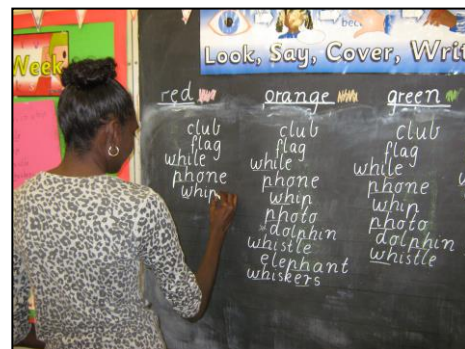 Week
Look, Say, Cover, Writ
red
club
flag
while
phone
whip
orange
club
flag
while
phone
whip
photo
dolphin
whistle
elephant
whiskers
green
club
flag
while
phone
whip
photo
dolphin
whistle